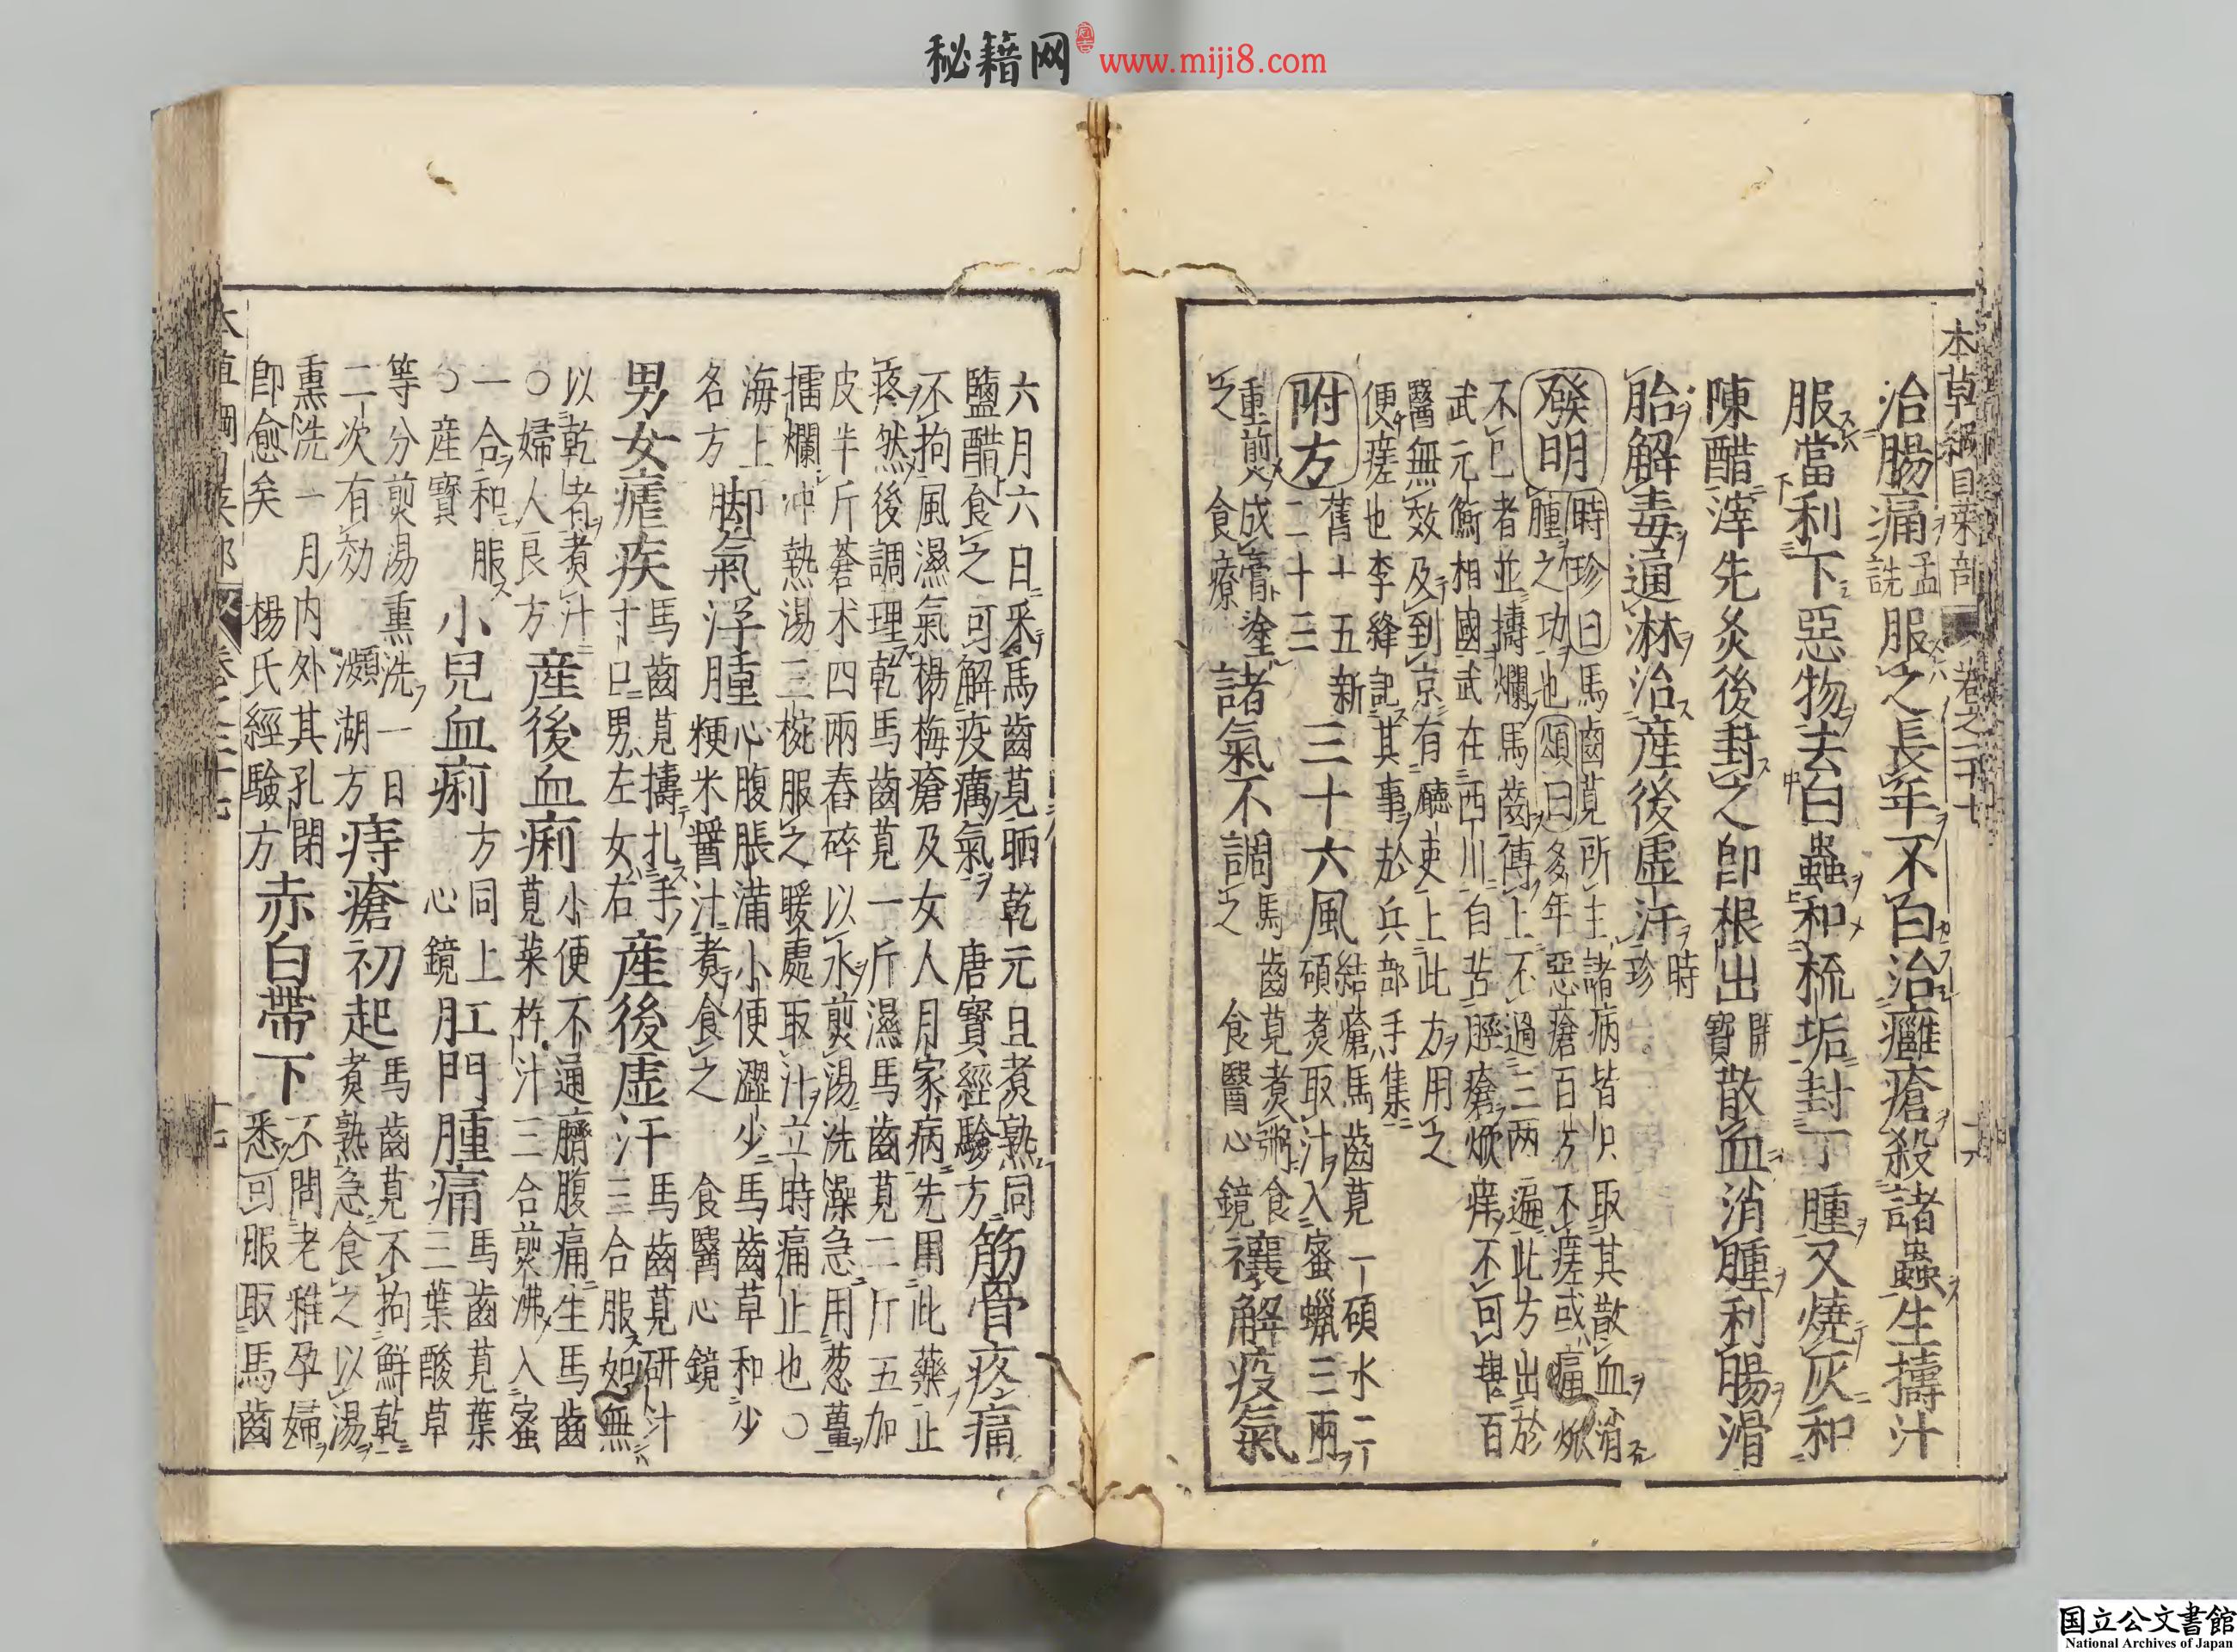 秘籍网 www.miji8.com
本草綱目菜部 卷之二十七
治腸痛孟詵服之長年不白治癰瘡殺諸蟲生擣汁
服當利下惡物去白蟲和梳垢封丁腫又燒灰和
陳醋滓先灸後封之即根出開寶散血消腫利腸滑
胎解毒通淋治產後虛汗時珍
發明時珍曰馬齒莧所主諸病皆只取其散血消
腫之功也頌曰多年惡瘡百方不瘥或㾦焮
不已者並擣爛馬齒傅上不過三两遍此方出於
武元衡相國武在西川自苦脛瘡焮痒不可堪百
醫無效及到京有廳吏上此方用之
便瘥也李絳記其事於兵部手集
附方舊十五新二十三
三十六風結瘡馬齒莧一碩水二
碩煮取汁入蜜蠟三兩
重煎成膏塗
之 食療
諸氣不調馬齒莧煮粥食
之 食醫心鏡
禳解疫氣
六月六日采馬齒莧晒乾元旦煮熟同
鹽醋食之可解疫癘氣 唐寶經驗方
筋骨疼痛
不拘風濕氣楊梅瘡及女人月家病先用此藥止
疼然後調理乾馬齒莧一斤濕馬齒莧二斤五加
皮半斤蒼术四兩舂碎以水煎湯洗澡急用葱薑
擂爛冲熱湯三椀服之暖處取汗立時痛止也○
海上名方
脚氣浮腫心腹脹滿小便澀少馬齒草和少
粳米醬汁煮食之 食醫心鏡
男女瘧疾馬齒莧擣扎手
寸口男左女右
產後虛汗馬齒莧研汁
三合服如無
以乾者煮汁
○婦人良方
產後血痢小便不通臍腹痛生馬齒
莧菜杵汁三合煎沸入蜜
一合和服
○產寶
小兒血痢方同上
心鏡
肛門腫痛馬齒莧葉
三葉酸草
等分煎湯熏洗一日
二次有効 瀕湖方
痔瘡初起馬齒莧不拘鮮乾
煮熟急食之以湯
熏洗一月内外其孔閉
即愈矣 楊氏經驗方
赤白帶下不問老稚孕婦
悉可服取馬齒
国立公文書館
National Archives of Japan